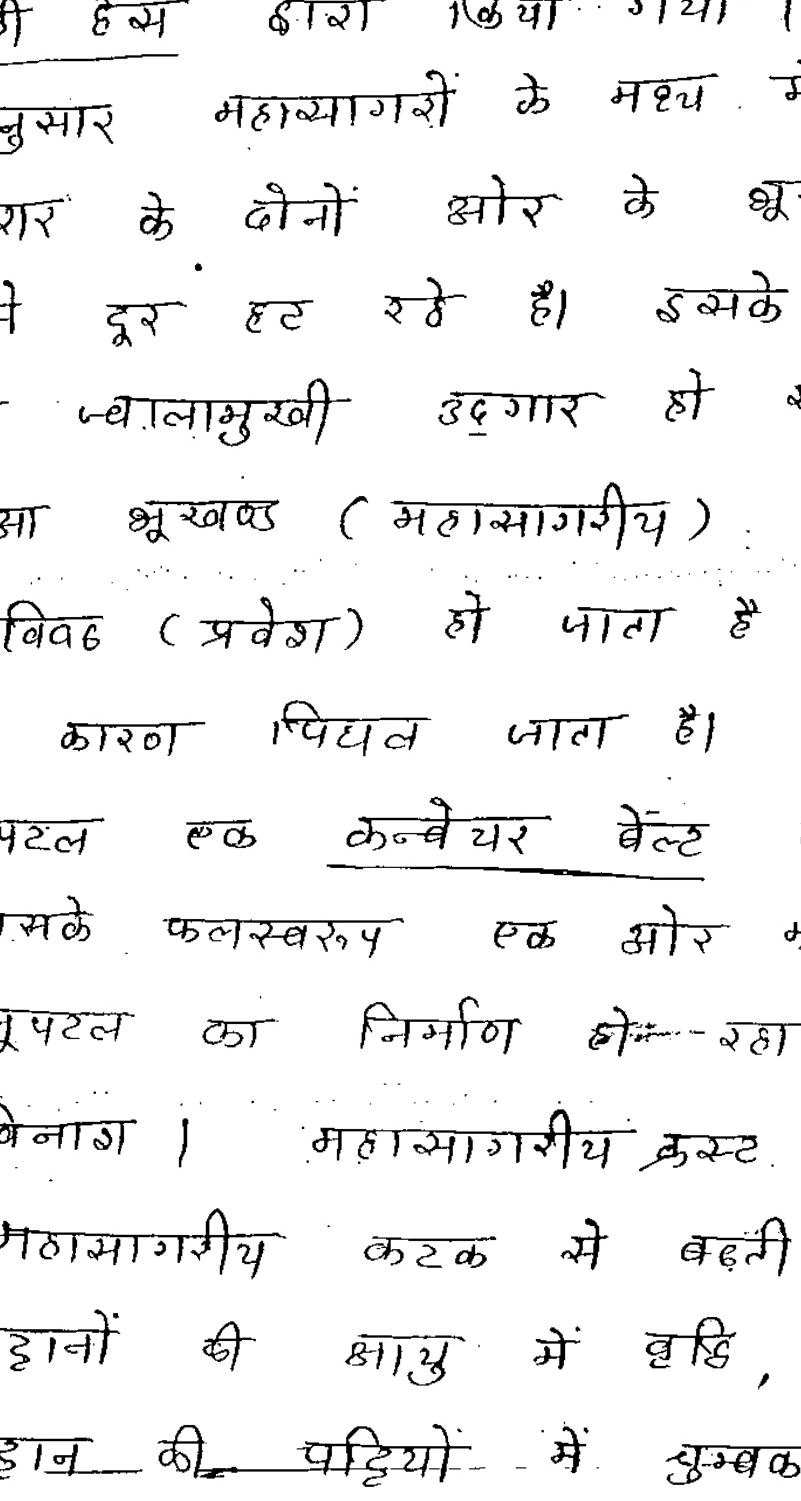 ी हेस द्वारा किया गया ।
नुसार महासागरों के मध्य में
के दोनों ओर के भू
दूर हट रहे है। इसके
ज्वालामुखी उद्गार हो
भूखण्ड (महासागरीय)
(प्रवेश) हो जाता है
कारण पिघल जाता है।
पटल एक कन्वेयर बेंल्ट
सके फलस्वरूप एक ओर
ूपटल का निर्माण हो रहा
विनाश । महासागरीय क्रस्ट
महासागरीय कटक से बढ़ती
ट्टानों की आयु में वृद्धि,
ट्टान की पट्टियों में चुम्बक